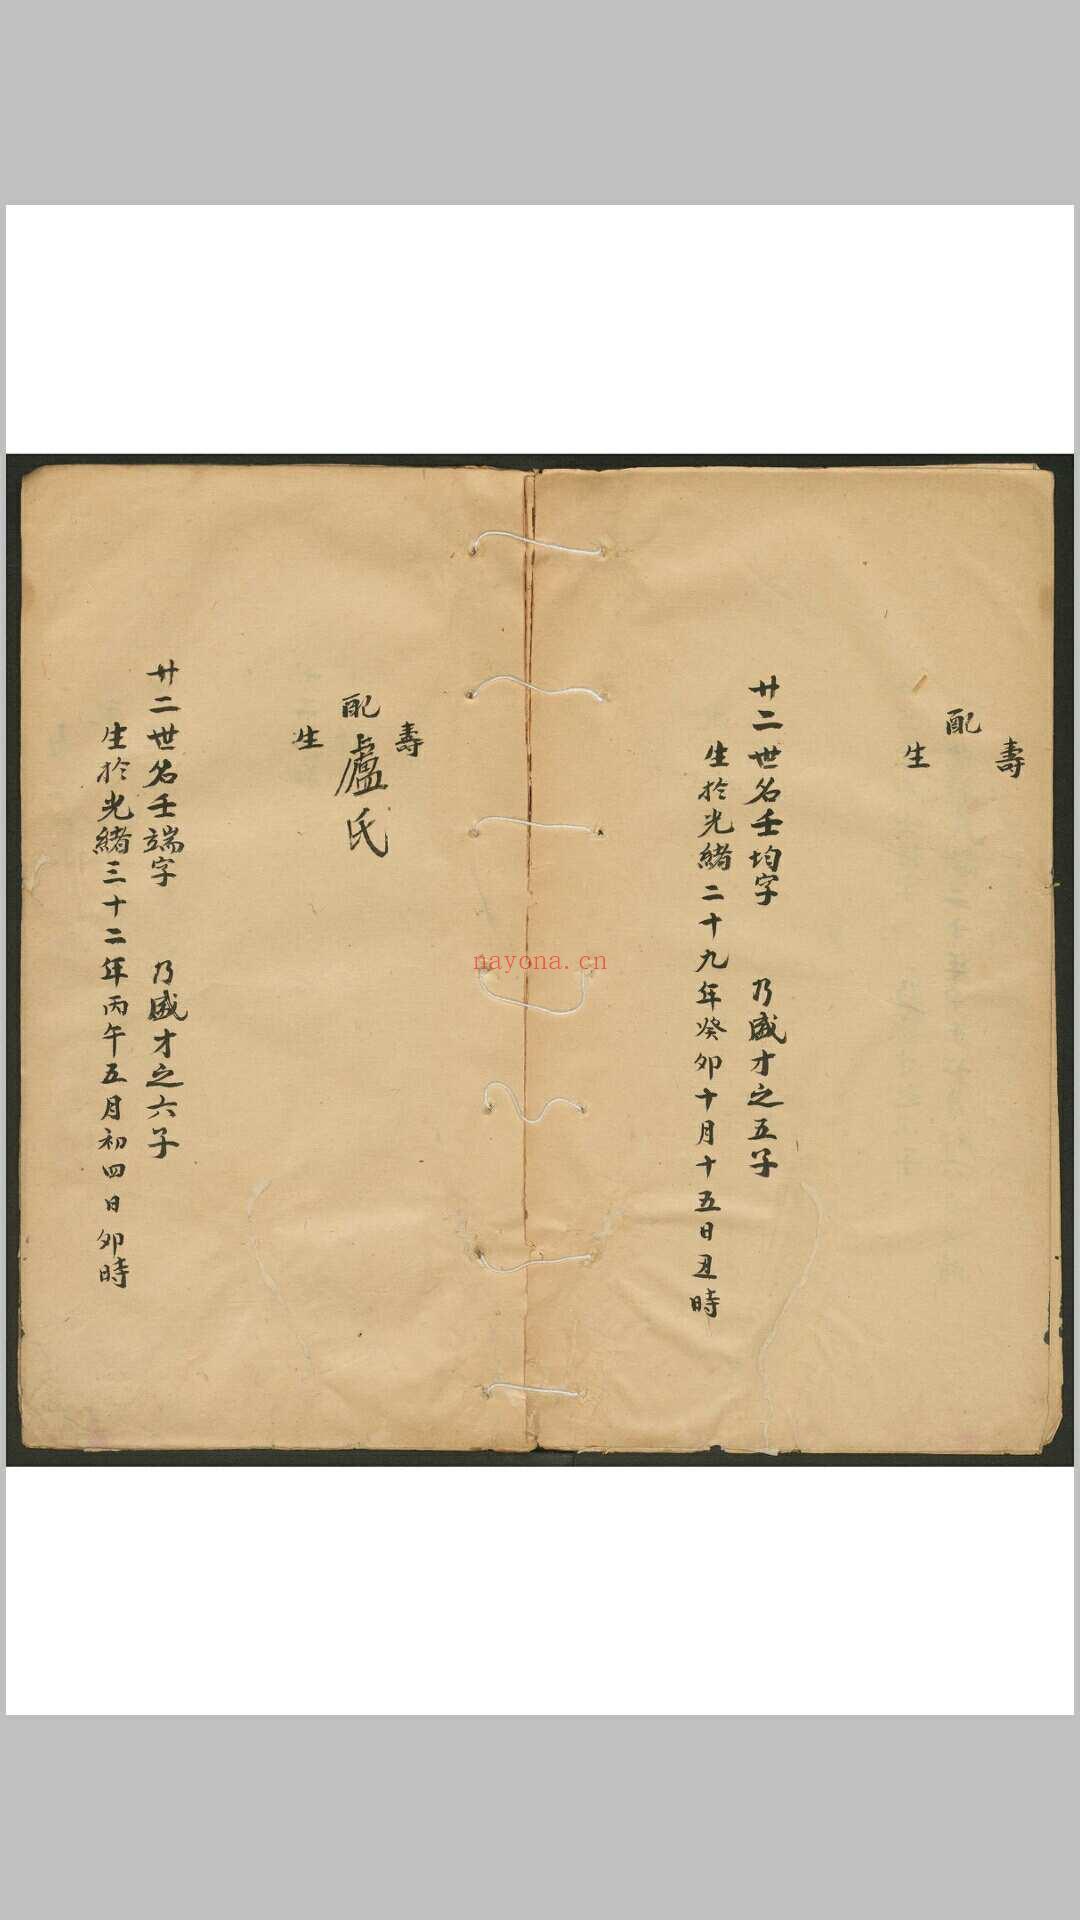 壽
配
生
廿二世名壬均字 乃盛才之五子
生於光緒二十九年癸卯十月十五日丑時
壽
配盧氏
生
廿二世名壬端字 乃盛才之六子
生於光緒三十二年丙午五月初四日卯時
nayona.cn